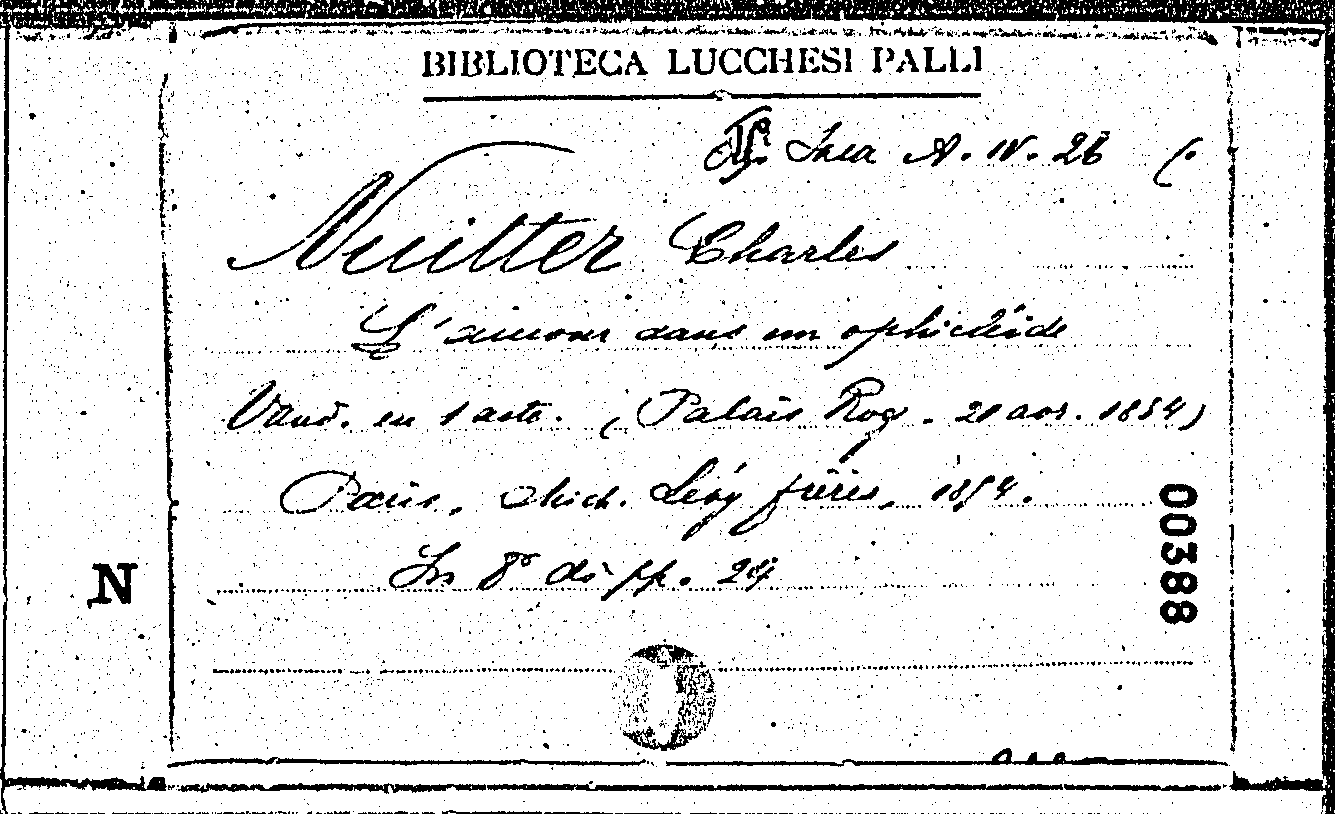 BIBLIOTECA LUCCHESI PALLI
A. IV. 26 (.
Nuitter Charles
L'amour dans un ophicléide
Vaud. en 1 acte. (Palais Roy. 21 avr. 1854)
Paris, Mich. Lévy frères, 1854.
In 8° di pp. 24
N
00388